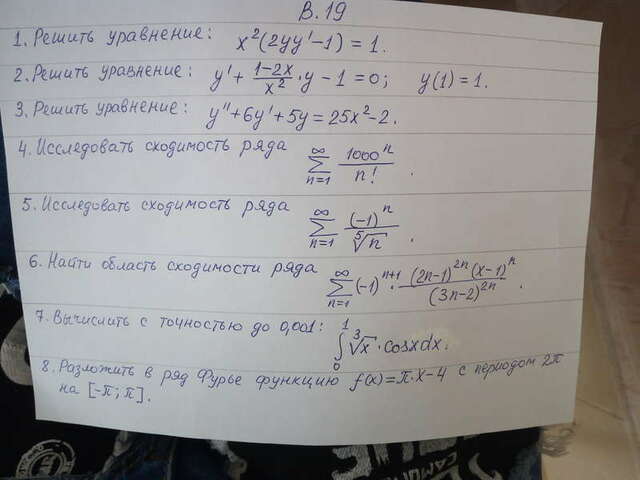 В.19
1. Решить уравнение: x²(2yy'-1) = 1.
2. Решить уравнение: y' + \frac{1-2x}{x²}·y - 1 = 0; y(1) = 1.
3. Решить уравнение: y'' + 6y' + 5y = 25x² - 2.
4. Исследовать сходимость ряда \sum_{n=1}^{∞} \frac{1000^n}{n!}.
5. Исследовать сходимость ряда \sum_{n=1}^{∞} \frac{(-1)^n}{\sqrt[5]{n}}.
6. Найти область сходимости ряда \sum_{n=1}^{∞} (-1)^{n+1}·\frac{(2n-1)^{2n}(x-1)^n}{(3n-2)^{2n}}.
7. Вычислить с точностью до 0,001: \int_0^1 \sqrt[3]{x}·cosxdx.
8. Разложить в ряд Фурье функцию f(x) = π·x-4 с периодом 2π
на [-π; π].